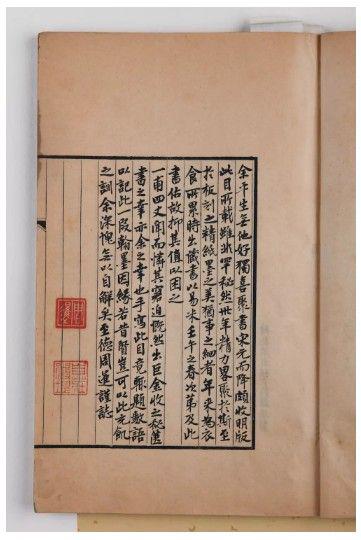 余平生無他好獨喜聚書宋元而降頗收明版
此目所載雖非罕秘然卅年精力畧聚於斯至
於板刻之精紙墨之美猶事之細者年來為衣
食所累時出藏書以易米壬午之春次第及此
書估故抑其值以困之
一甫四丈聞而憐其窘迫慨然出巨金收之秘匧
書之幸亦余之幸也手寫此目竟輒題數語
以記此一段翰墨因緣若昔賢豈可以此充飢
之訓余深愧無以自解矣至德周暹謹誌